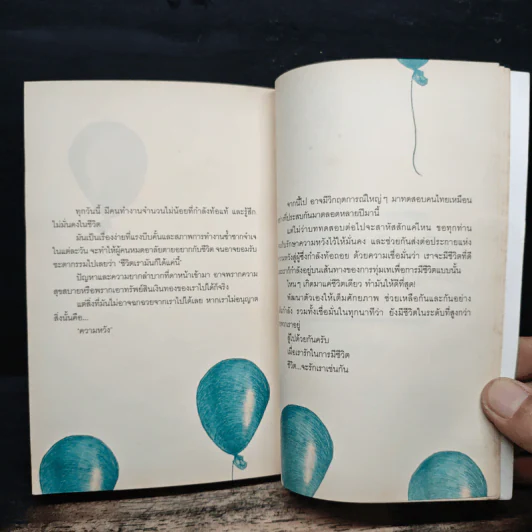 ทุกวันนี้ มีคนทำงานจำนวนไม่น้อยที่กำลังท้อแท้ และรู้สึก
ไม่มั่นคงในชีวิต
มันเป็นเรื่องง่ายที่แรงบีบคั้นและสภาพการทำงานซ้ำซากจำเจ
ในแต่ละวัน จะทำให้ผู้คนหมดอาลัยตายอยากกับชีวิต จนอาจยอมรับ
ชะตากรรมไปเลยว่า 'ชีวิตเรามันก็ได้แค่นี้'
ปัญหาและความยากลำบากที่ดาหน้าเข้ามา อาจพรากความ
สุขสบายหรือพรากเอาทรัพย์สินเงินทองของเราไปได้ก็จริง
แต่สิ่งที่มันไม่อาจฉกฉวยจากเราไปได้เลย หากเราไม่อนุญาต
สิ่งนั้นคือ...
'ความหวัง'
จากนี้ไป อาจมีวิกฤตการณ์ใหญ่ๆ มาทดสอบคนไทยเหมือน
ที่ประสบกันมาตลอดหลายปีมานี้
แต่ไม่ว่าบททดสอบต่อไปจะสาหัสสักแค่ไหน ขอทุกท่าน
รักษาความหวังไว้ให้มั่นคง และช่วยกันส่งต่อประกายแห่ง
สู่ผู้ซึ่งกำลังท้อถอย ด้วยความเชื่อมั่นว่า เราจะมีชีวิตที่ดี
กำลังอยู่บนเส้นทางของการทุ่มเทเพื่อการมีชีวิตแบบนั้น
ไหนๆ เกิดมาแค่ชีวิตเดียว ทำมันให้ดีที่สุด!
พัฒนาตัวเองให้เต็มศักยภาพ ช่วยเหลือกันและกันอย่าง
รวมทั้งเชื่อมั่นในทุกนาทีว่า ยังมีชีวิตในระดับที่สูงกว่า
เราอยู่
สู้ไปด้วยกันครับ
เมื่อเรารักในการมีชีวิต
ชีวิต...จะรักเราเช่นกัน